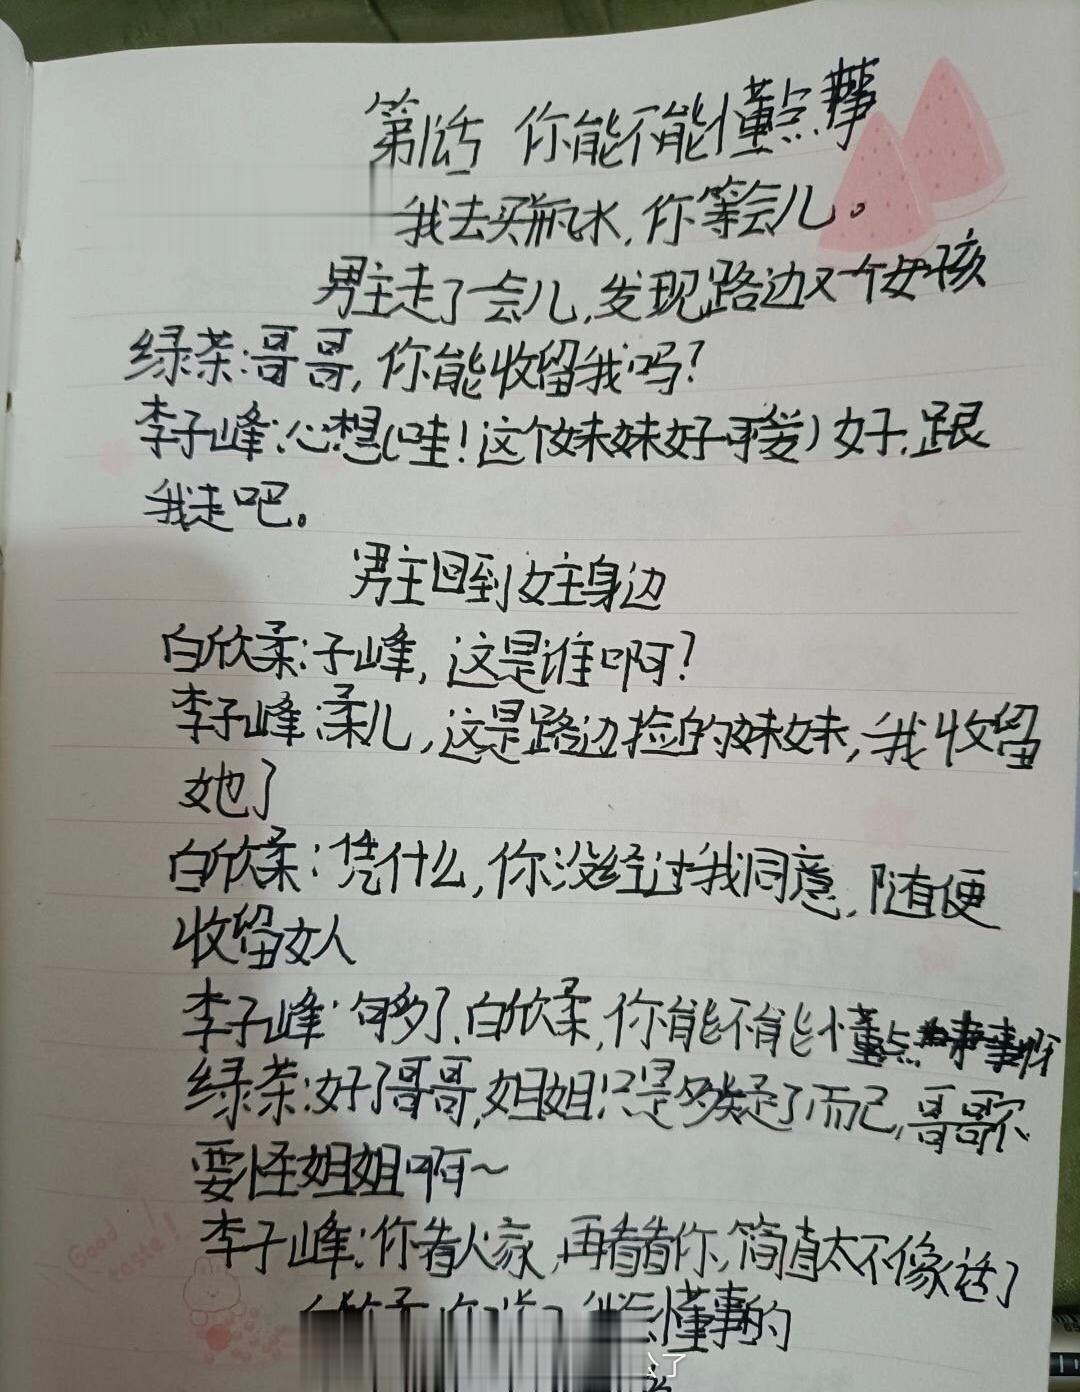 第1话 你能不能懂点事
我去买瓶水,你等会儿。
男主走了一会儿,发现路边又一个女孩
绿茶:哥哥,你能收留我吗?
李子峰:心想(哇!这个妹妹好可爱)好,跟
我走吧。
男主回到女主身边
白欣柔:子峰,这是谁啊?
李子峰:柔儿,这是路边捡的妹妹,我收留
她了
白欣柔:凭什么,你没经过我同意,随便
收留女人
李子峰:够了,白欣柔,你能不能懂点事呀
绿茶:好了哥哥,姐姐只是多疑了而已,哥哥不
要怪姐姐啊~
李子峰:你看人家,再看看你,简直太不像话了
懂事的
了
Good taste!